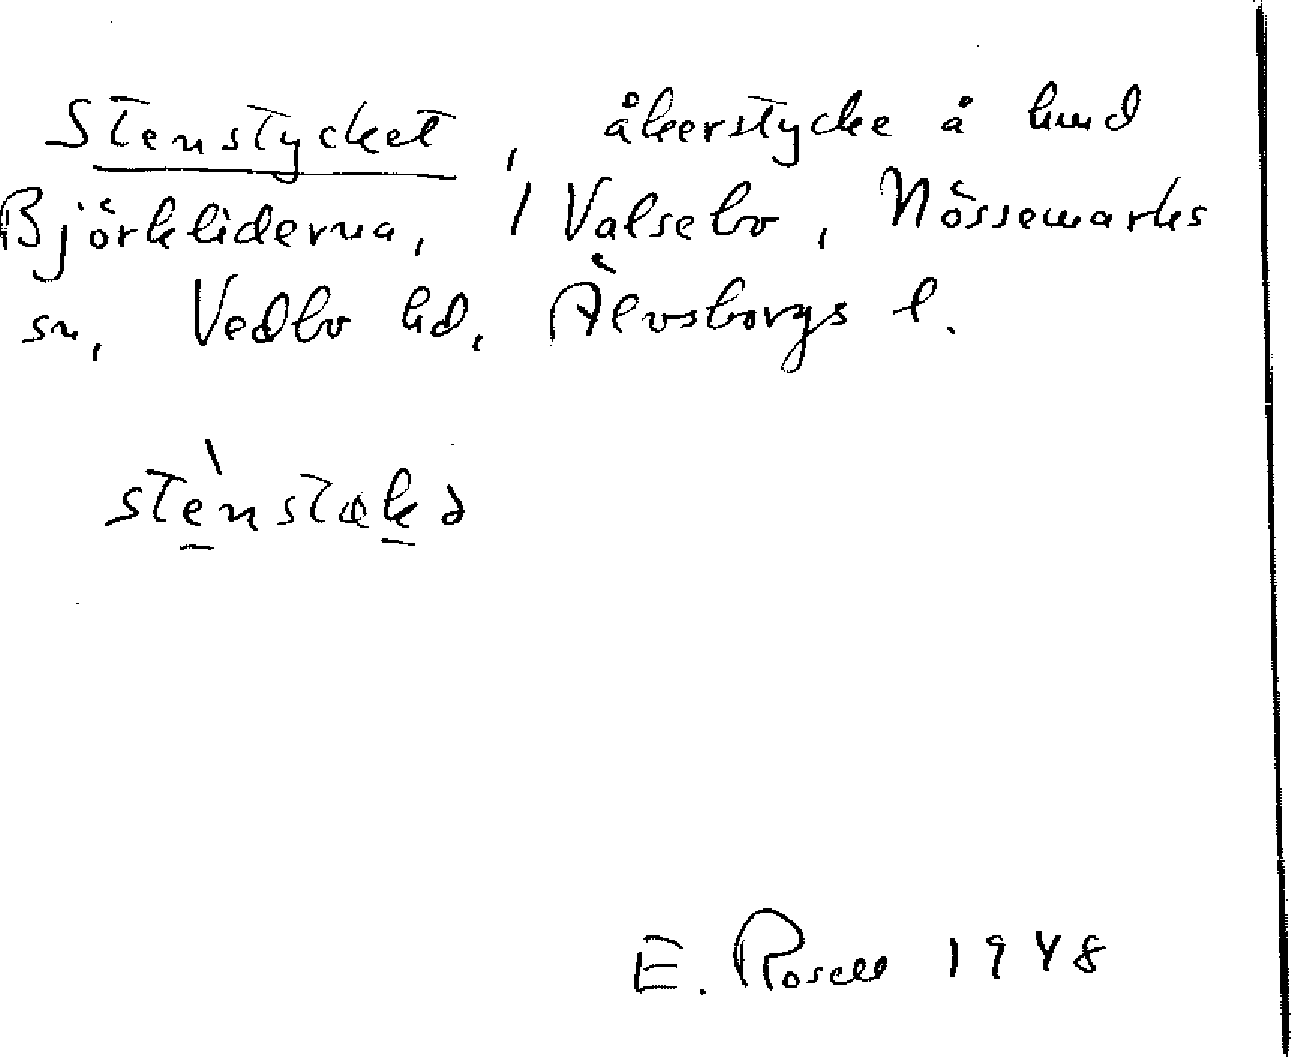 Stenstycket, åkerstycke å hmd
Björkliderna, 1 Valsebo, Nössemarks
sn, Vedbo hd, Älvsborgs l.
stènstækə
E. Rosell 1948